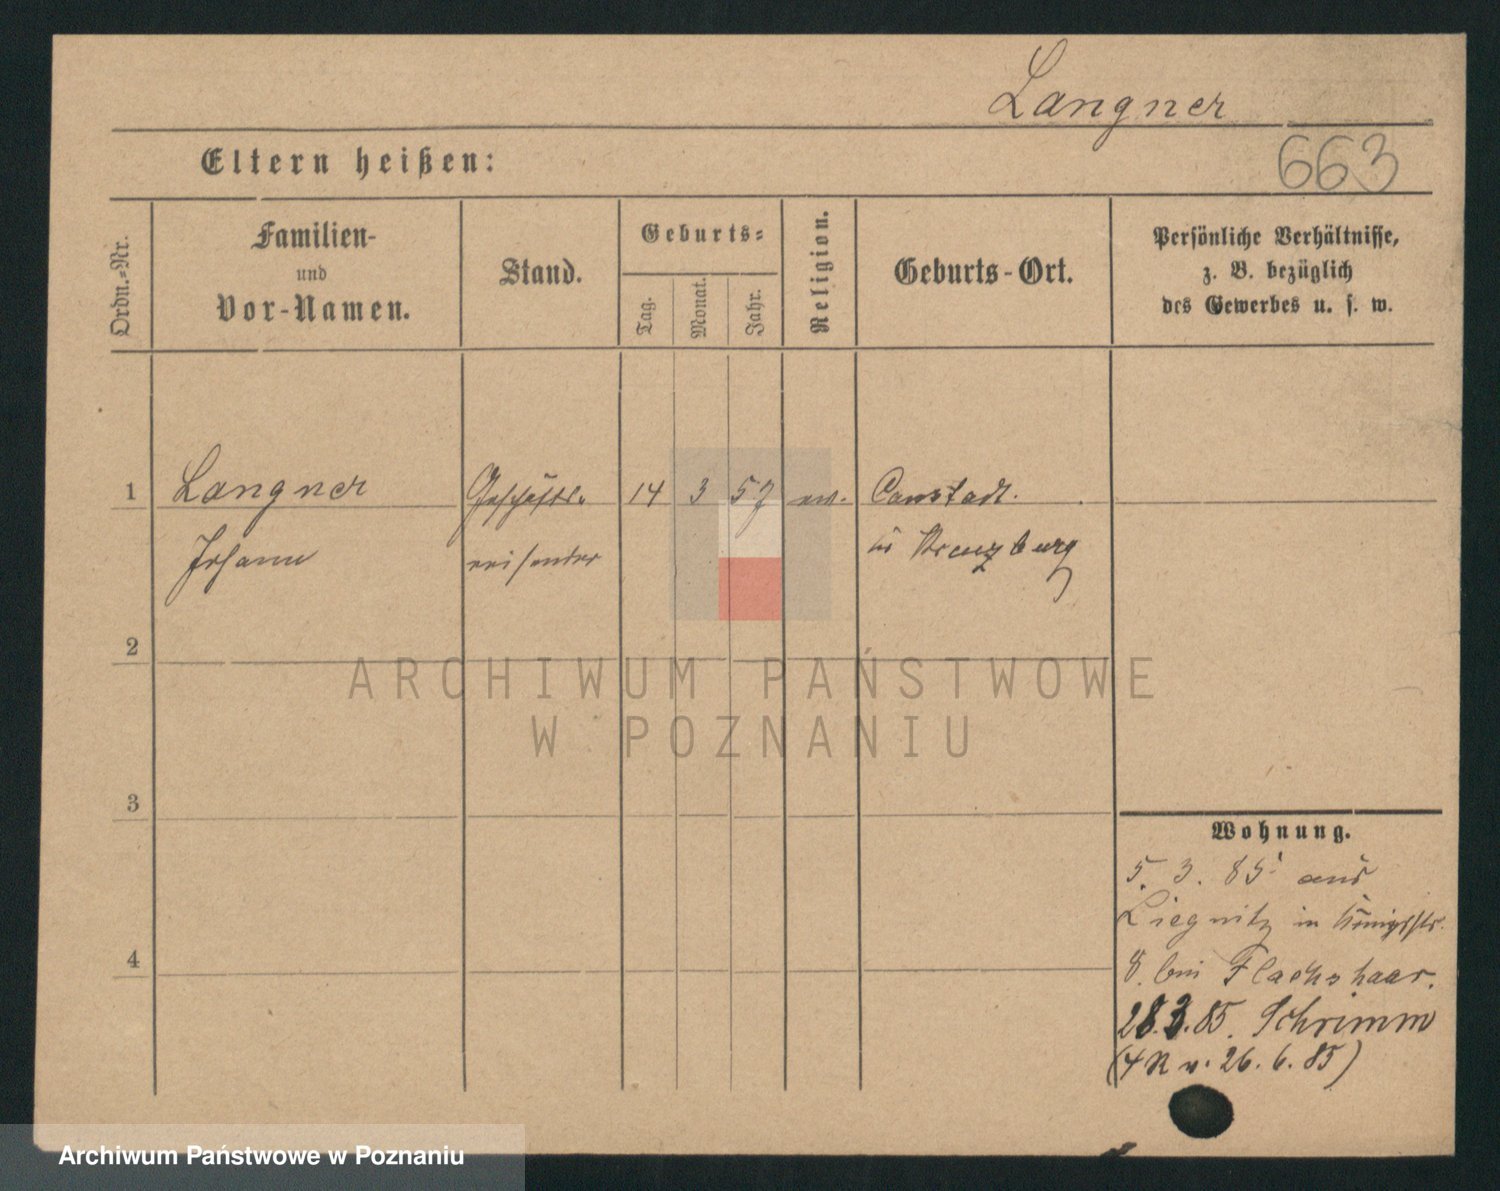 Langner
663
Eltern heißen:
Ordn.-Nr.
Familien-
und
Vor-Namen.
Stand.
Geburts-
Tag.
Monat.
Jahr.
Religion.
Geburts-Ort.
Persönliche Verhältnisse,
z. B. bezüglich
des Gewerbes u. s. w.
1 Langner Geschäfts- 14 3 57 ev. Constadt.
Johann reisender Kr Kreuzburg
2
3
4
ARCHIWUM PAŃSTWOWE
W POZNANIU
Wohnung.
5. 3. 85 aus
Liegnitz in Königsstr.
8. bei Flachshaar.
28.3.85. Schrimm
(4 R v. 26. 6. 85)
Archiwum Państwowe w Poznaniu